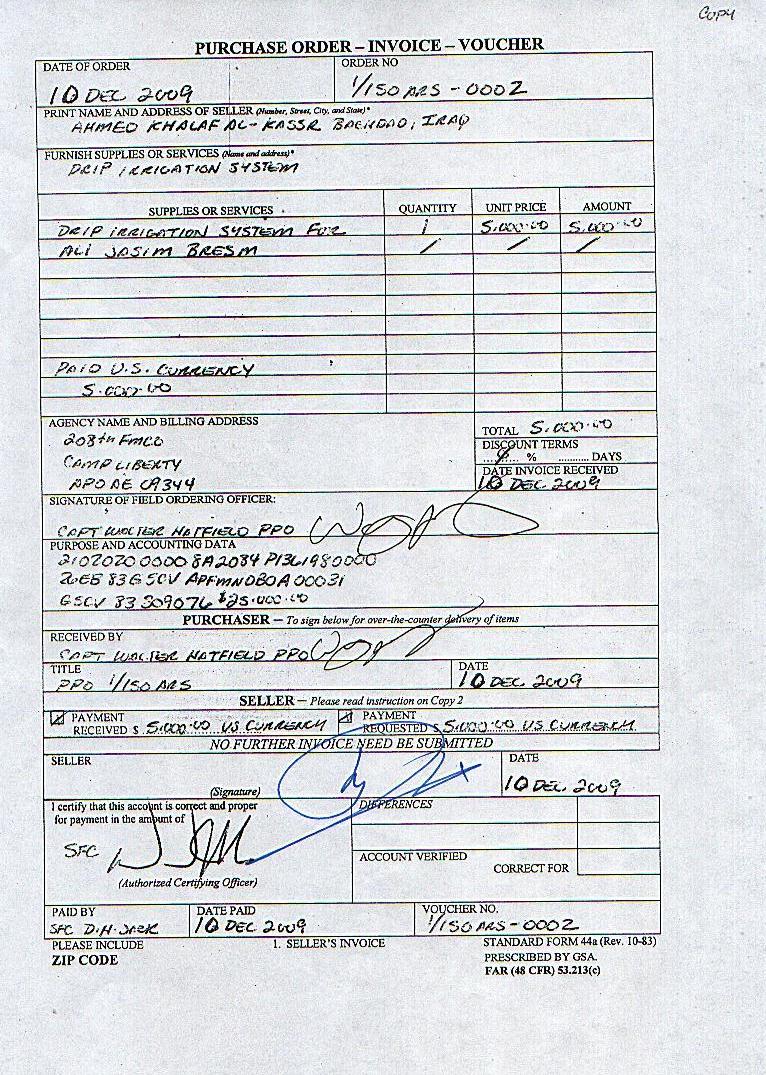 COPY
PURCHASE ORDER – INVOICE – VOUCHER
DATE OF ORDER
10 DEC 2009
ORDER NO
1/150 ARS - 0002
PRINT NAME AND ADDRESS OF SELLER (Number, Street, City, and State)*
AHMED KHALAF AL-KASSR BAGHDAD, IRAQ
FURNISH SUPPLIES OR SERVICES (Name and address)*
DRIP IRRIGATION SYSTEM
SUPPLIES OR SERVICES QUANTITY UNIT PRICE AMOUNT
DRIP IRRIGATION SYSTEM FOR 1 5,000.00 5,000.00
ALI JASIM BRESM / / /
PAID U.S. CURRENCY
5,000.00
AGENCY NAME AND BILLING ADDRESS
208th FMCO
CAMP LIBERTY
APO AE 09344
TOTAL 5,000.00
DISCOUNT TERMS
% DAYS
DATE INVOICE RECEIVED
10 DEC 2009
SIGNATURE OF FIELD ORDERING OFFICER:
CAPT WALTER HATFIELD PPO
PURPOSE AND ACCOUNTING DATA
2102020 0000 8A2084 P131198
26EB 83 GSCV APFMNDBOA 00031
GSCV 83 S09076 $25,000.00
PURCHASER – To sign below for over-the-counter delivery of items
RECEIVED BY
CAPT WALTER HATFIELD PPO
TITLE
PPO 1/150 ARS
DATE
10 DEC 2009
SELLER – Please read instruction on Copy 2
PAYMENT RECEIVED $ 5,000.00 US CURRENCY
PAYMENT REQUESTED $ 5,000.00 US CURRENCY
NO FURTHER INVOICE NEED BE SUBMITTED
SELLER
(Signature)
DATE
10 DEC 2009
I certify that this account is correct and proper
for payment in the amount of
SFC
(Authorized Certifying Officer)
DIFFERENCES
ACCOUNT VERIFIED
CORRECT FOR
PAID BY
SFC D.H. JACK
DATE PAID
10 DEC 2009
VOUCHER NO.
1/150 ARS - 0002
PLEASE INCLUDE
ZIP CODE
1. SELLER'S INVOICE
STANDARD FORM 44a (Rev. 10-83)
PRESCRIBED BY GSA.
FAR (48 CFR) 53.213(c)